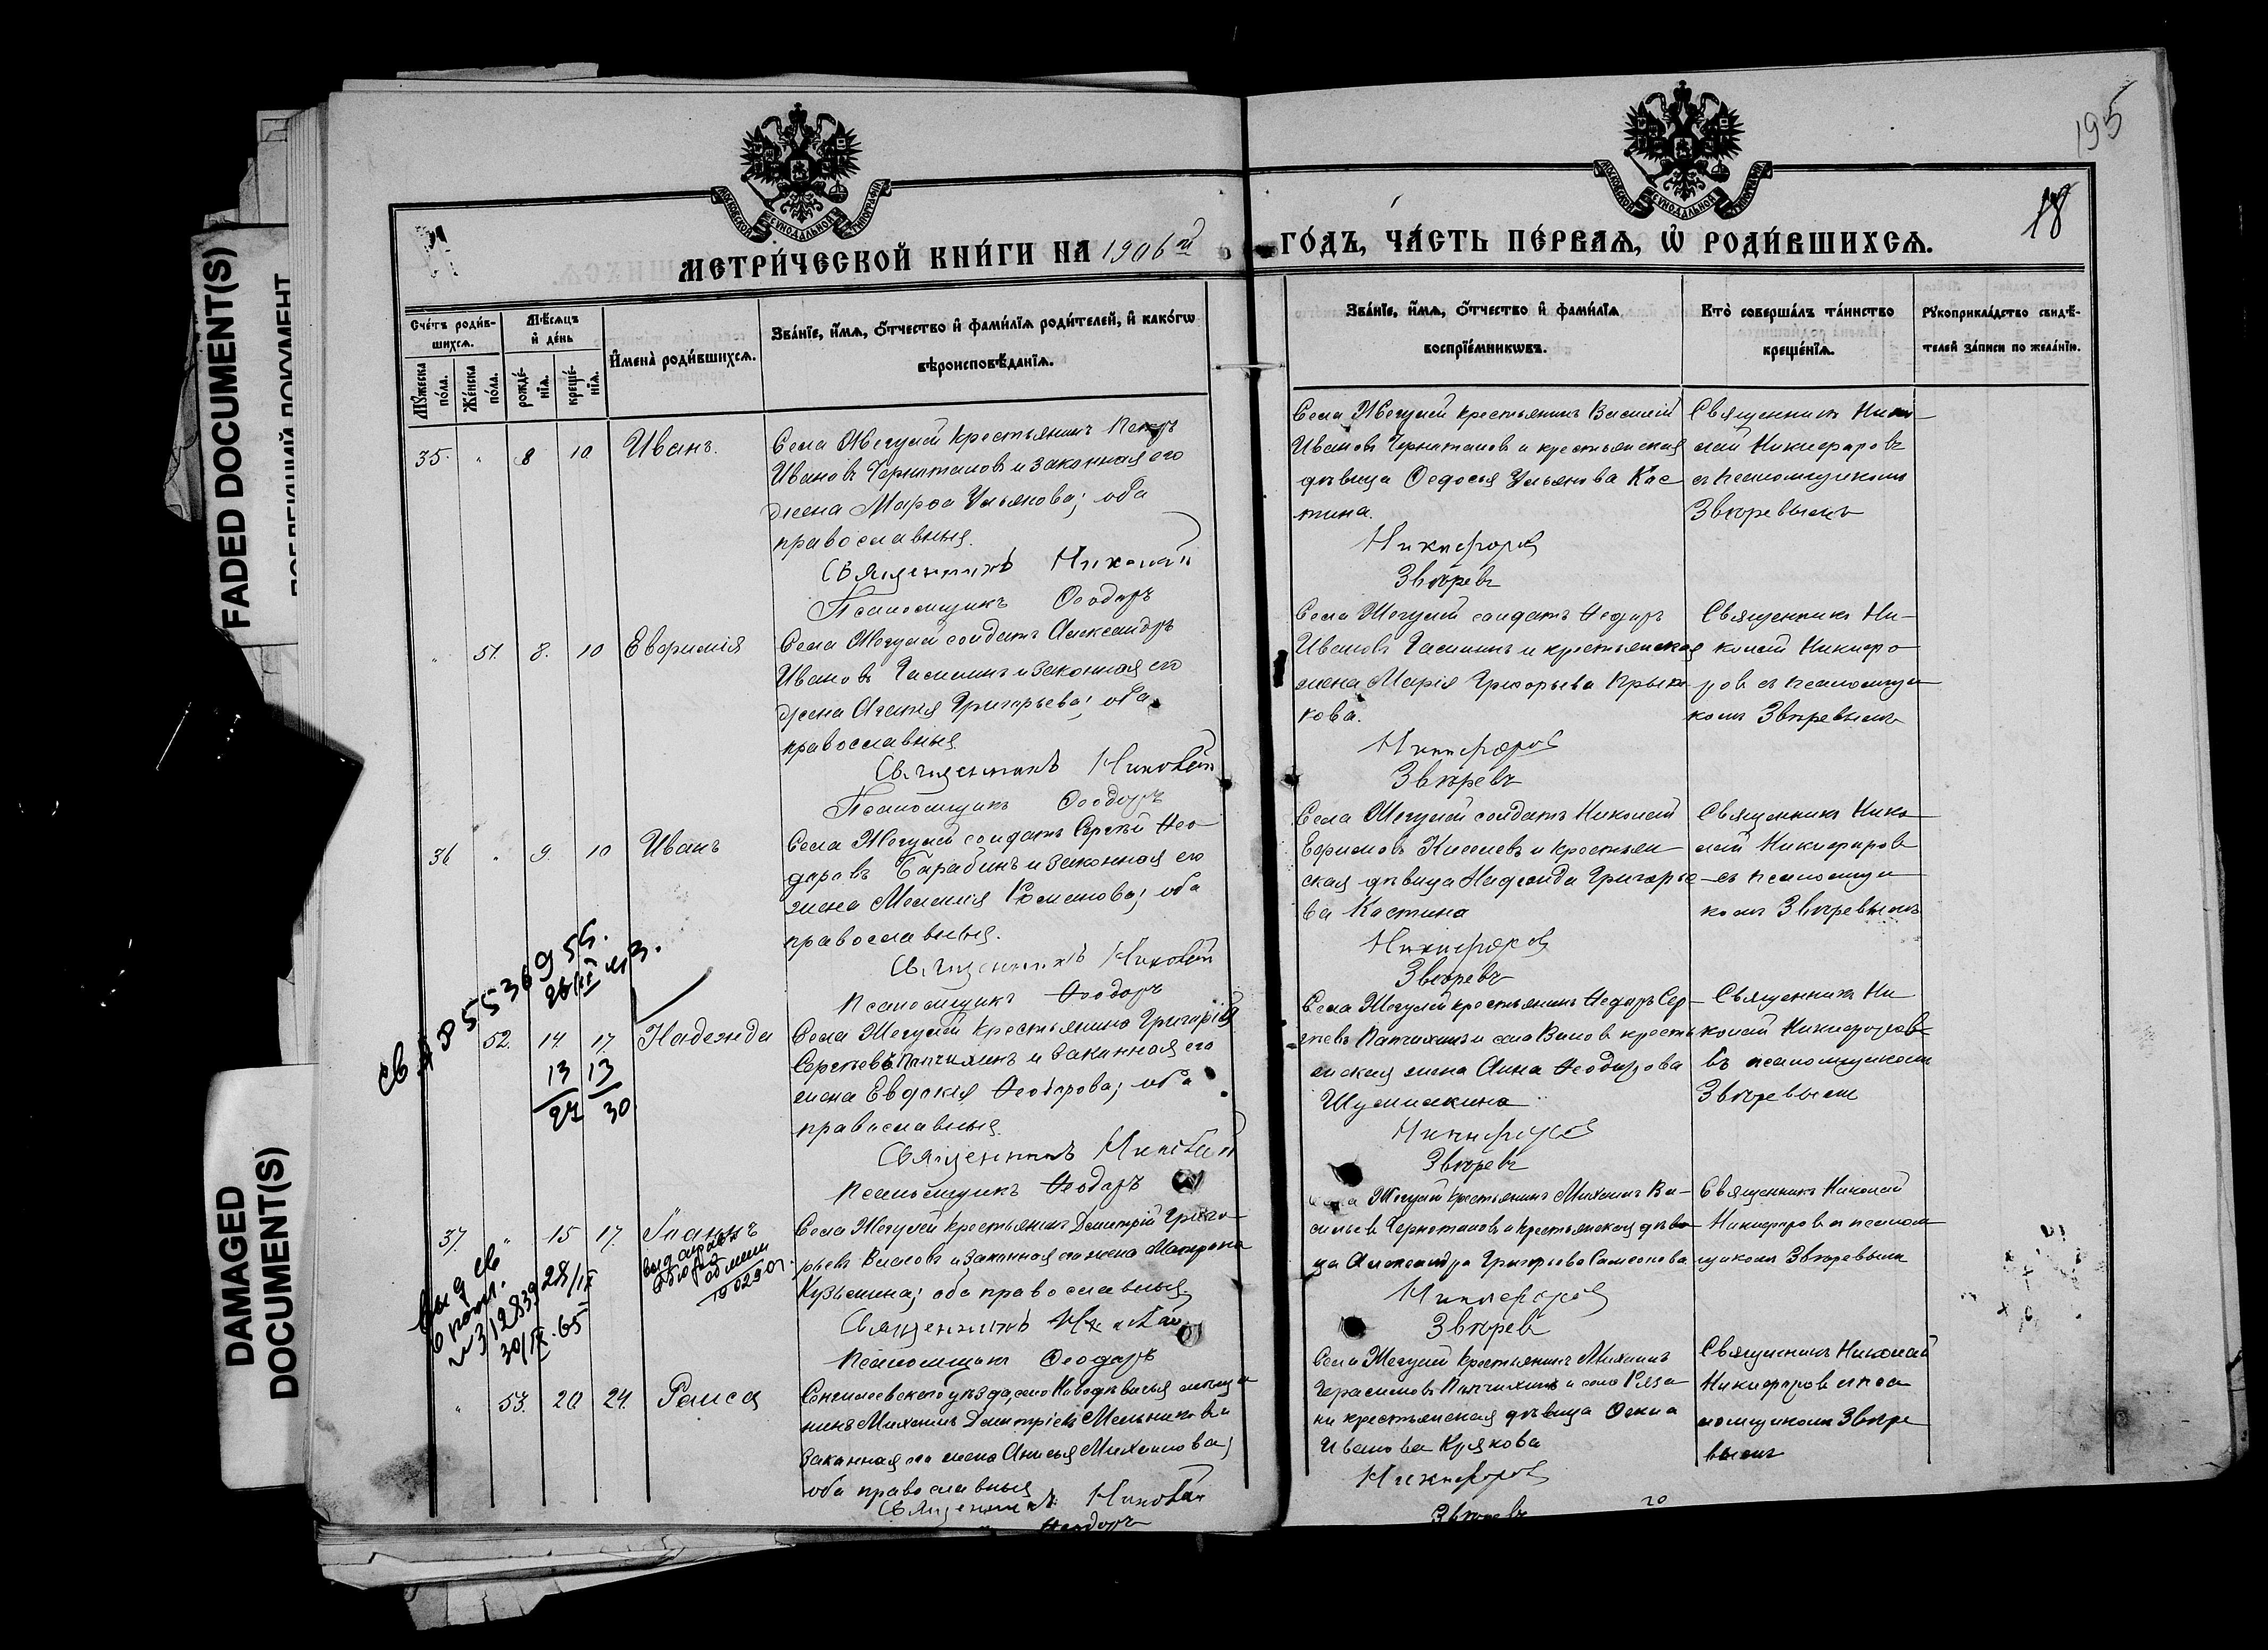 FADED DOCUMENT(S)
DAMAGED
DOCUMENT(S)
195
18
МОСКОВСКОЙ СѴНОДАЛЬНОЙ ТИПОГРАФІИ
МОСКОВСКОЙ СѴНОДАЛЬНОЙ ТИПОГРАФІИ
МЕТРИ́ЧЕСКОЙ КНИ́ГИ НА 1906 й
ГО́ДЪ, ЧА́СТЬ ПЕ́РВАѦ, Ѡ҆ РОДИ́ВШИХСѦ.
Сче́тъ роди́в-
шихсѧ.
Мꙋ́жеска по́ла.
Же́нска по́ла.
Мѣ́сѧцъ
и҆ де́нь
рожде́-
нїѧ.
креще́-
нїѧ.
И҆мена̀ роди́вшихсѧ.
Зва́нїе, и҆́мѧ, ѻ҆́тчество и҆ фами́лїѧ роди́телей, и҆ како́гѡ
вѣроисповѣ́данїѧ.
Зва́нїе, и҆́мѧ, ѻ҆́тчество и҆ фами́лїѧ
воспрїе́мникѡвъ.
Кто̀ соверша́лъ та́инство
креще́нїѧ.
Рꙋкоприкла́дство свидѣ́-
телей за́писи по жела́нїю.
35. " 8 10 Иванъ.
Села Жегулей крестьянинъ Петръ
Ивановъ Чернотановъ и законная его
жена Марѳа Ульянова; оба
православныя.
Священникъ Николай
Псаломщикъ Ѳеодоръ
Села Жегулей крестьянинъ Василій
Ивановъ Чернотановъ и крестьянская
дѣвица Ѳедосья Ульянова Кос
тина.
Никифоров
Звѣревъ
Священникъ Нико
лай Никифоровъ
съ псаломщикомъ
Звѣревымъ
" 51. 8. 10 Евфимія
Села Жегулей солдатъ Александръ
Ивановъ и законная его
жена Агапія Григорьева; оба
православныя
Священникъ Николай
Псаломщикъ Ѳеодоръ
Села Жегулей солдатъ Ѳедоръ
Ивановъ и крестьянская
жена Марія Григорьева
кова.
Никифоров
Звѣревъ
Священникъ Ни-
колай Никифо
ров съ псаломщи
комъ Звѣревымъ
36 " 9. 10 Иванъ
Села Жегулей солдатъ Сергѣй Ѳео
доровъ Барабинъ и законная его
жена Меланія Романова; оба
православныя.
Священникъ Николай
Псаломщикъ Ѳеодоръ
Села Жегулей солдатъ Николай
Ефимовъ Киселевъ и крестьян
ская дѣвица Надежда Григорье
ва Костина
Никифоров
Звѣревъ
Священникъ Нико
лай Никифоров
съ псаломщи
комъ Звѣревымъ
52. 14. 17. Надежда
13 13
27 30
Села Жегулей крестьянинъ Григорій
Сергѣевъ Папчихинъ и законная его
жена Евдокія Ѳеодорова; оба
православныя.
Священникъ Николай
Псаломщикъ Ѳеодоръ
Села Жегулей крестьянинъ Ѳедоръ Сер
гѣевъ Папчихинъ и села Винов крестья
нская жена Анна Ѳеодорова
Никифоров
Звѣревъ
Священникъ Ни
колай Никифоров
съ псаломщикомъ
Звѣревым
37. " 15 17. Іоаннъ
Села Жегулей крестьянинъ Димитрій Григо
рьевъ Власовъ и законная его жена Матрона
Кузьмина; оба православныя.
Священникъ Николай
Псаломщикъ Ѳеодоръ
Села Жегулей крестьянинъ Михаилъ Ва
сильевъ Чернотановъ и крестьянская дѣви
ца Александра Григорьева Самсонова
Никифоров
Звѣрев
Священникъ Николай
Никифоров съ псалом
щикомъ Звѣревымъ
выд св
№ 312839 28/IX
30/IX.65
" 53. 20 24. Раиса
Сенгилеевского уѣзда, села Новодѣвичья мѣща
нинъ Михаилъ Димитріевъ Мельниковъ и
законная его жена Анисья Михаилова;
оба православныя
Священникъ Николай
Ѳеодоръ
Села Жегулей крестьянинъ Михаилъ
Герасимовъ Папчихинъ и села Ряза
ни крестьянская дѣвица
Иванова Крякова
Никифоров
Звѣревъ
Священникъ Николай
Никифоров съ пса
ломщикомъ Звѣре
вымъ
20